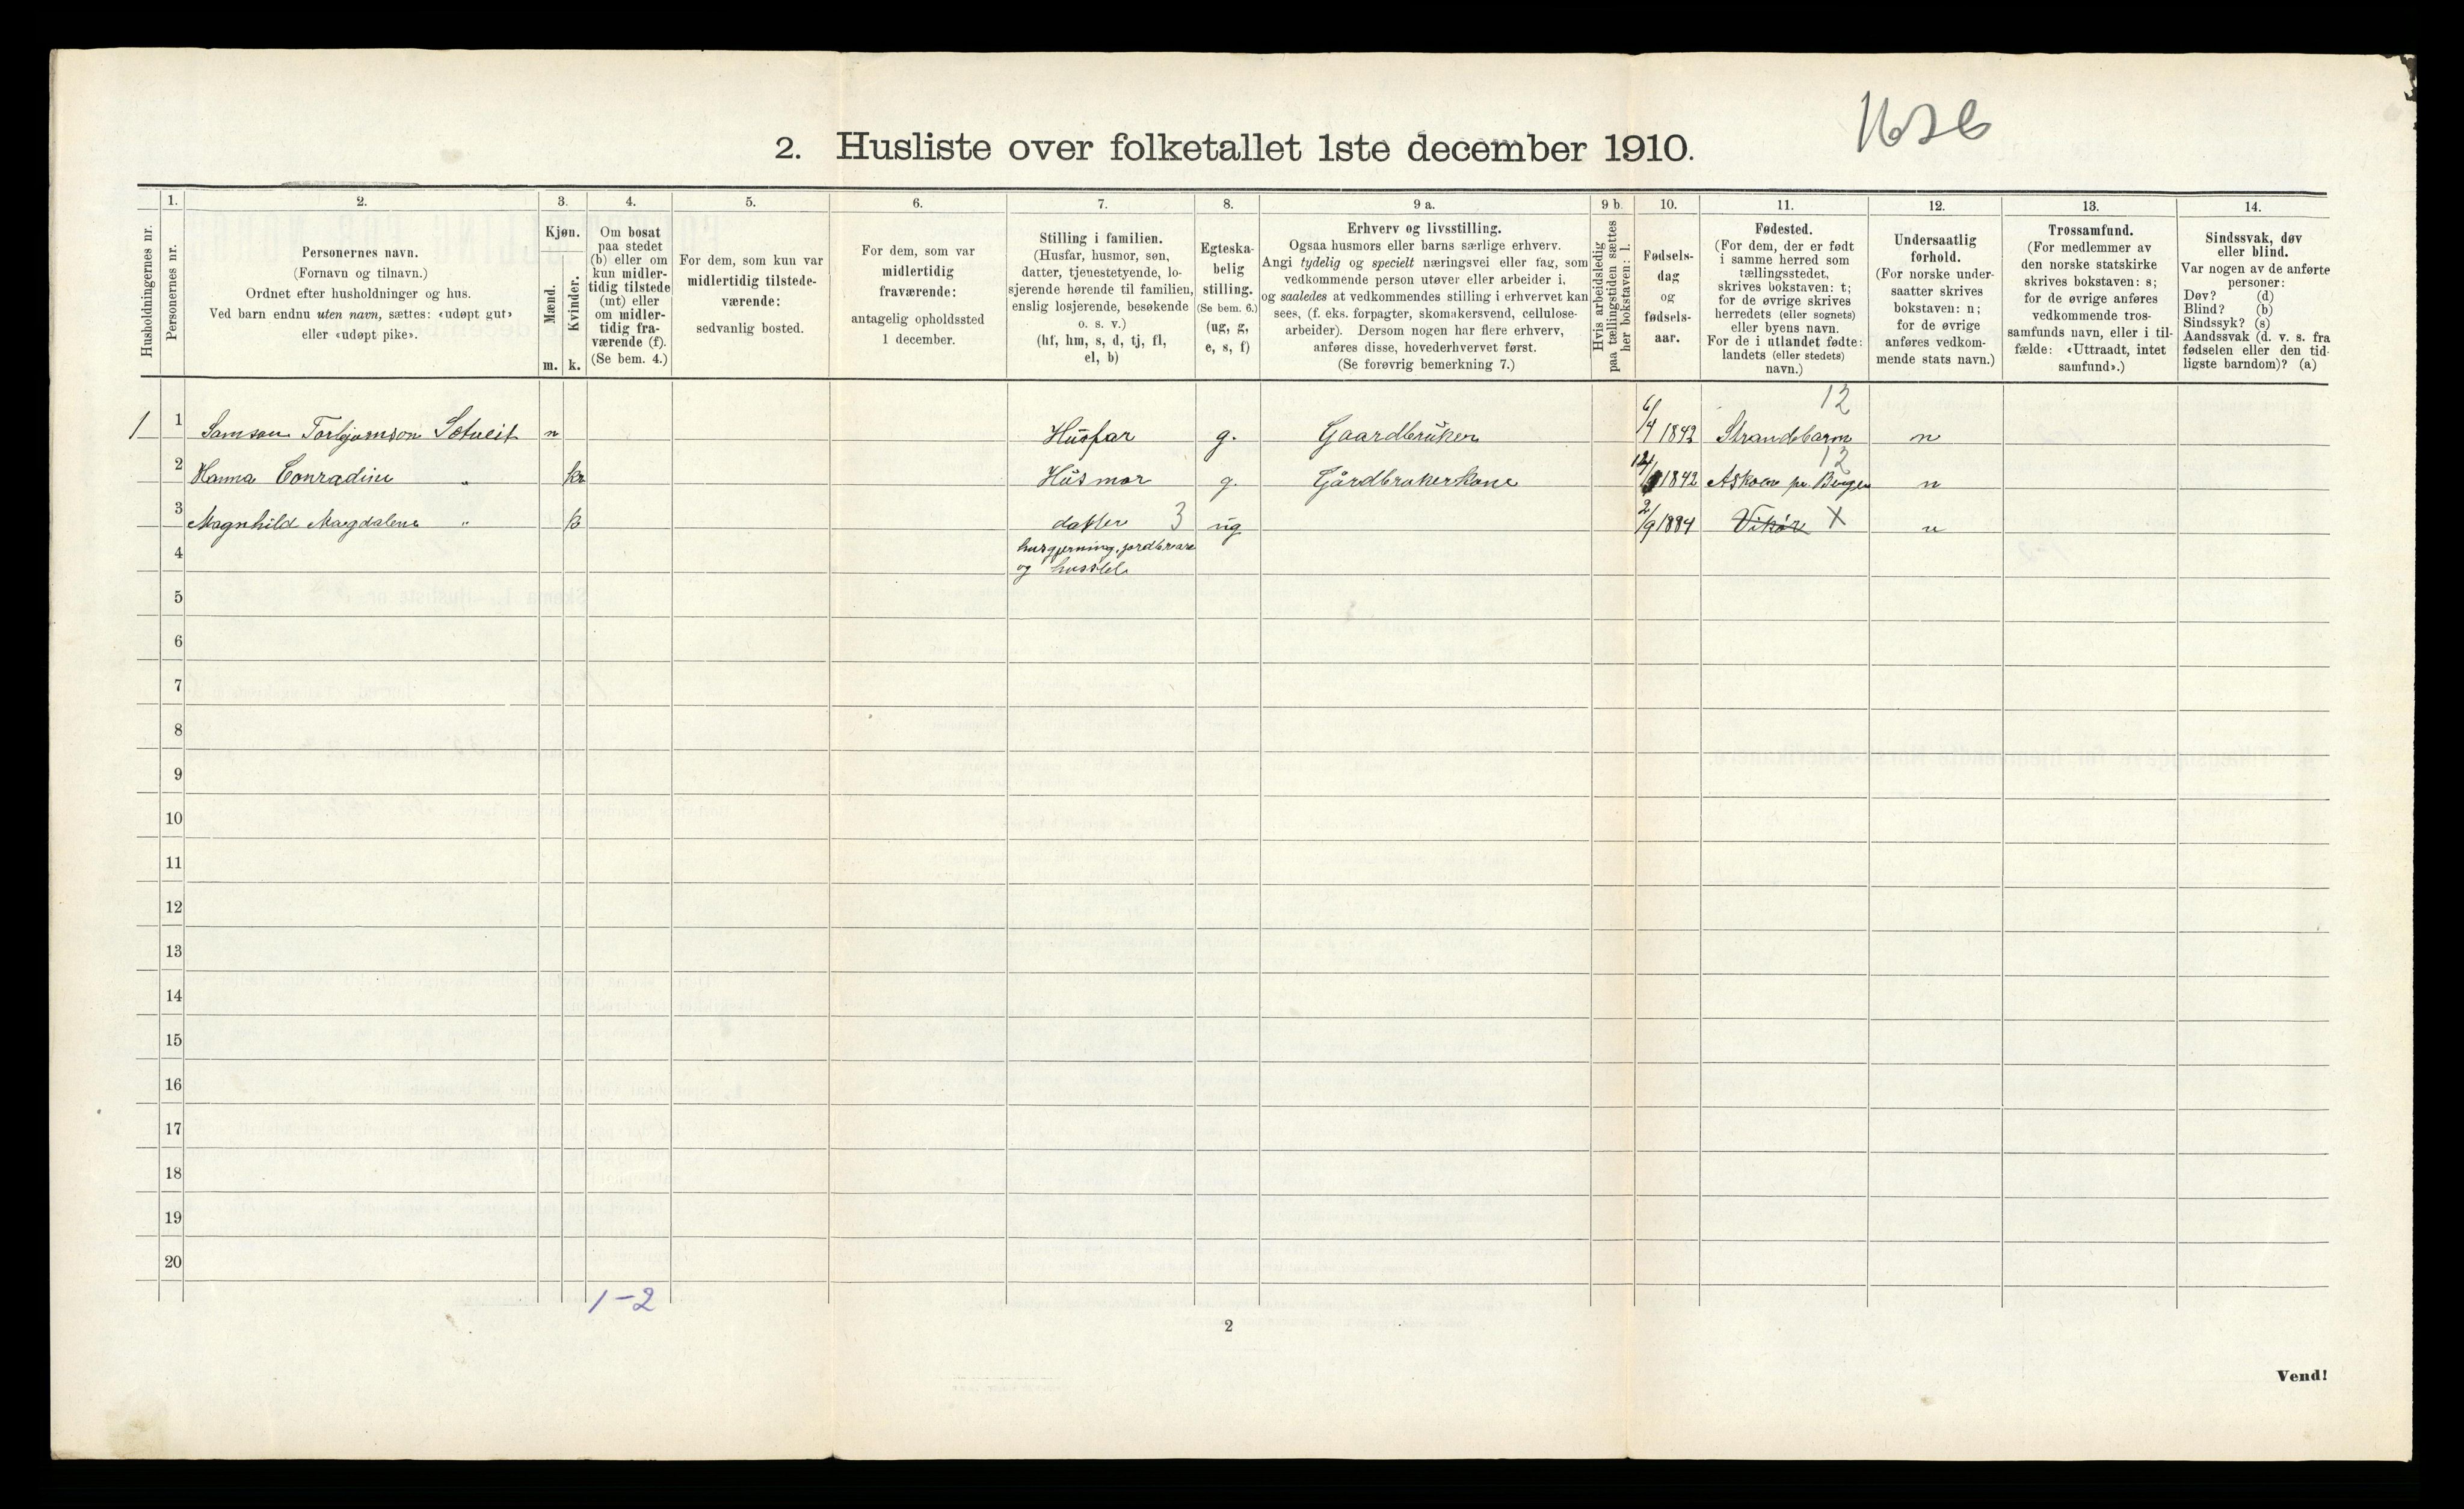 1626
2. Husliste over folketallet 1ste december 1910.
Husholdningernes nr.
1.
Personernes nr.
2.
Personernes navn.
(Fornavn og tilnavn.)
Ordnet efter husholdninger og hus.
Ved barn endnu uten navn, sættes: «udøpt gut»
eller «udøpt pike».
3.
Kjøn.
Mænd.
Kvinder.
m. k.
4.
Om bosat
paa stedet
(b) eller om
kun midler-
tidig tilstede
(mt) eller
om midler-
tidig fra-
værende (f).
(Se bem. 4.)
5.
For dem, som kun var
midlertidig tilstede-
værende:
sedvanlig bosted.
6.
For dem, som var
midlertidig
fraværende:
antagelig opholdssted
1 december.
7.
Stilling i familien.
(Husfar, husmor, søn,
datter, tjenestetyende, lo-
sjerende hørende til familien,
enslig losjerende, besøkende
o. s. v.)
(hf, hm, s, d, tj, fl,
el, b)
8.
Egteska-
belig
stilling.
(Se bem. 6.)
(ug, g,
e, s, f)
9 a.
Erhverv og livsstilling.
Ogsaa husmors eller barns særlige erhverv.
Angi tydelig og specielt næringsvei eller fag, som
vedkommende person utøver eller arbeider i,
og saaledes at vedkommendes stilling i erhvervet kan
sees, (f. eks. forpagter, skomakersvend, cellulose-
arbeider). Dersom nogen har flere erhverv,
anføres disse, hovederhvervet først.
(Se forøvrig bemerkning 7.)
9 b.
Hvis arbeidsledig
paa tællingstiden sættes
her bokstaven: l.
10.
Fødsels-
dag
og
fødsels-
aar.
11.
Fødested.
(For dem, der er født
i samme herred som
tællingsstedet,
skrives bokstaven: t;
for de øvrige skrives
herredets (eller sognets)
eller byens navn.
For de i utlandet fødte:
landets (eller stedets)
navn.)
12.
Undersaatlig
forhold.
(For norske under-
saatter skrives
bokstaven: n;
for de øvrige
anføres vedkom-
mende stats navn.)
13.
Trossamfund.
(For medlemmer av
den norske statskirke
skrives bokstaven: s;
for de øvrige anføres
vedkommende tros-
samfunds navn, eller i til-
fælde: «Uttraadt, intet
samfund».)
14.
Sindssvak, døv
eller blind.
Var nogen av de anførte
personer:
Døv? (d)
Blind? (b)
Sindssyk? (s)
Aandssvak (d. v. s. fra
fødselen eller den tid-
ligste barndom)? (a)
12
1 1 Samson Torbjørnson Sætveit m Husfar g. Gaardbruker 6/4 1842 Strandebarm n
12
2 Hanna Conradine " k Husmor g. Gårdbrukerkone 1842 Askøen pr. Bergen n
3 Magnhild Magdalene " k datter 3 ug 2/9 1884 Vikør X n
4 husgjerning, jordbruk
og husstel
5
6
7
8
9
10
11
12
13
14
15
16
17
18
19
20
1-2
2
Vend!